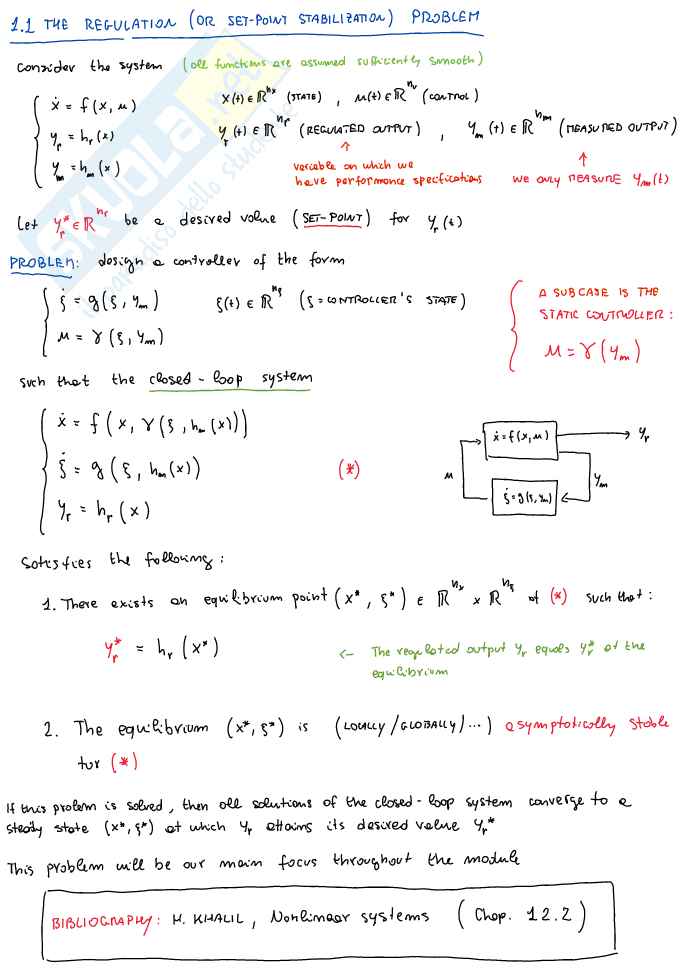 1.1 THE REGULATION (OR SET-POINT STABILIZATION) PROBLEM
Consider the system (all functions are assumed sufficiently smooth)
ẋ = f(x, u)
x(t) ∈ ℝ^{n_x} (STATE) , u(t) ∈ ℝ^{n_u} (CONTROL)
y_r = h_r(x)
y_r(t) ∈ ℝ^{n_r} (REGULATED OUTPUT) , y_m(t) ∈ ℝ^{n_m} (MEASURED OUTPUT)
y_m = h_m(x)
variable on which we
have performance specifications
WE ONLY MEASURE y_m(t)
Let y_r* ∈ ℝ^{n_r} be a desired value (SET-POINT) for y_r(t)
PROBLEM: design a controller of the form
ξ̇ = g(ξ, y_m)
ξ(t) ∈ ℝ^{n_ξ} (ξ = CONTROLLER'S STATE)
u = γ(ξ, y_m)
A SUBCASE IS THE
STATIC CONTROLLER:
u = γ(y_m)
such that the closed-loop system
ẋ = f(x, γ(ξ, h_m(x)))
ξ̇ = g(ξ, h_m(x))
(*)
y_r = h_r(x)
ẋ = f(x, u)
y_r
u
y_m
ξ̇ = g(ξ, y_m)
Satisfies the following:
1. There exists an equilibrium point (x*, ξ*) ∈ ℝ^{n_x} × ℝ^{n_ξ} of (*) such that:
y_r* = h_r(x*)
<- The regulated output y_r equals y_r* at the
equilibrium
2. The equilibrium (x*, ξ*) is (LOCALLY/GLOBALLY/...) asymptotically stable
for (*)
If this prolem is solved, then all solutions of the closed-loop system converge to a
steady state (x*, ξ*) at which y_r attains its desired value y_r*
This problem will be our main focus throughout the module
BIBLIOGRAPHY: H. KHALIL, Nonlinear systems (Chap. 12.2)
SKUOLA.net
il paradiso dello studente